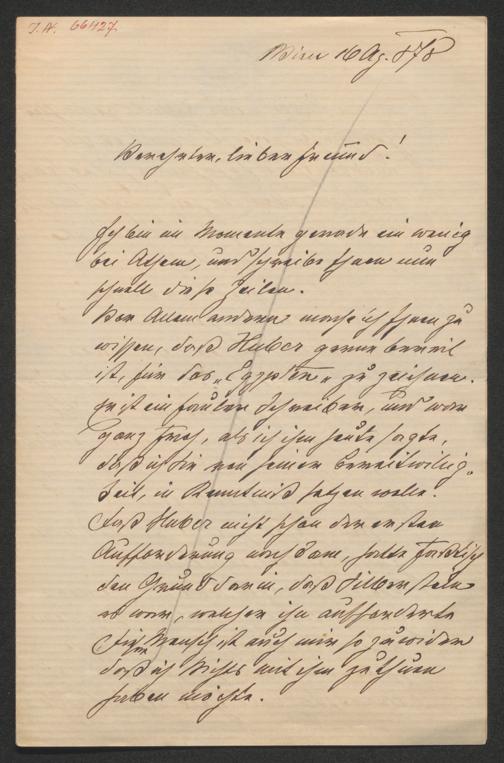 J.N. 66427
Wien 16 Ag. 878
Verehrter, lieber Freund!
Ich bin im Momente gerade ein wenig
bei Athem, und schreibe Ihnen nun
schnell diese Zeilen.
Vor Allem andern mache ich Ihnen zu
wissen, daß Huber gerne bereit
ist, für das „Egypten" zu zeichnen.
Er ist ein fauler Schreiber, und war
ganz froh, als ich ihm heute sagte,
daß ich Sie von seiner Bereitwillig-
keit, in Kenntniß setzen wolle.
Daß Huber nicht schon der ersten
Aufforderung nachkam, hatte
den Grund darin, daß Silberstein
es war, welcher ihn aufforderte
Dieser Mensch ist auch mir so zuwider
daß ich Nichts mit ihm zu thuen
haben möchte.